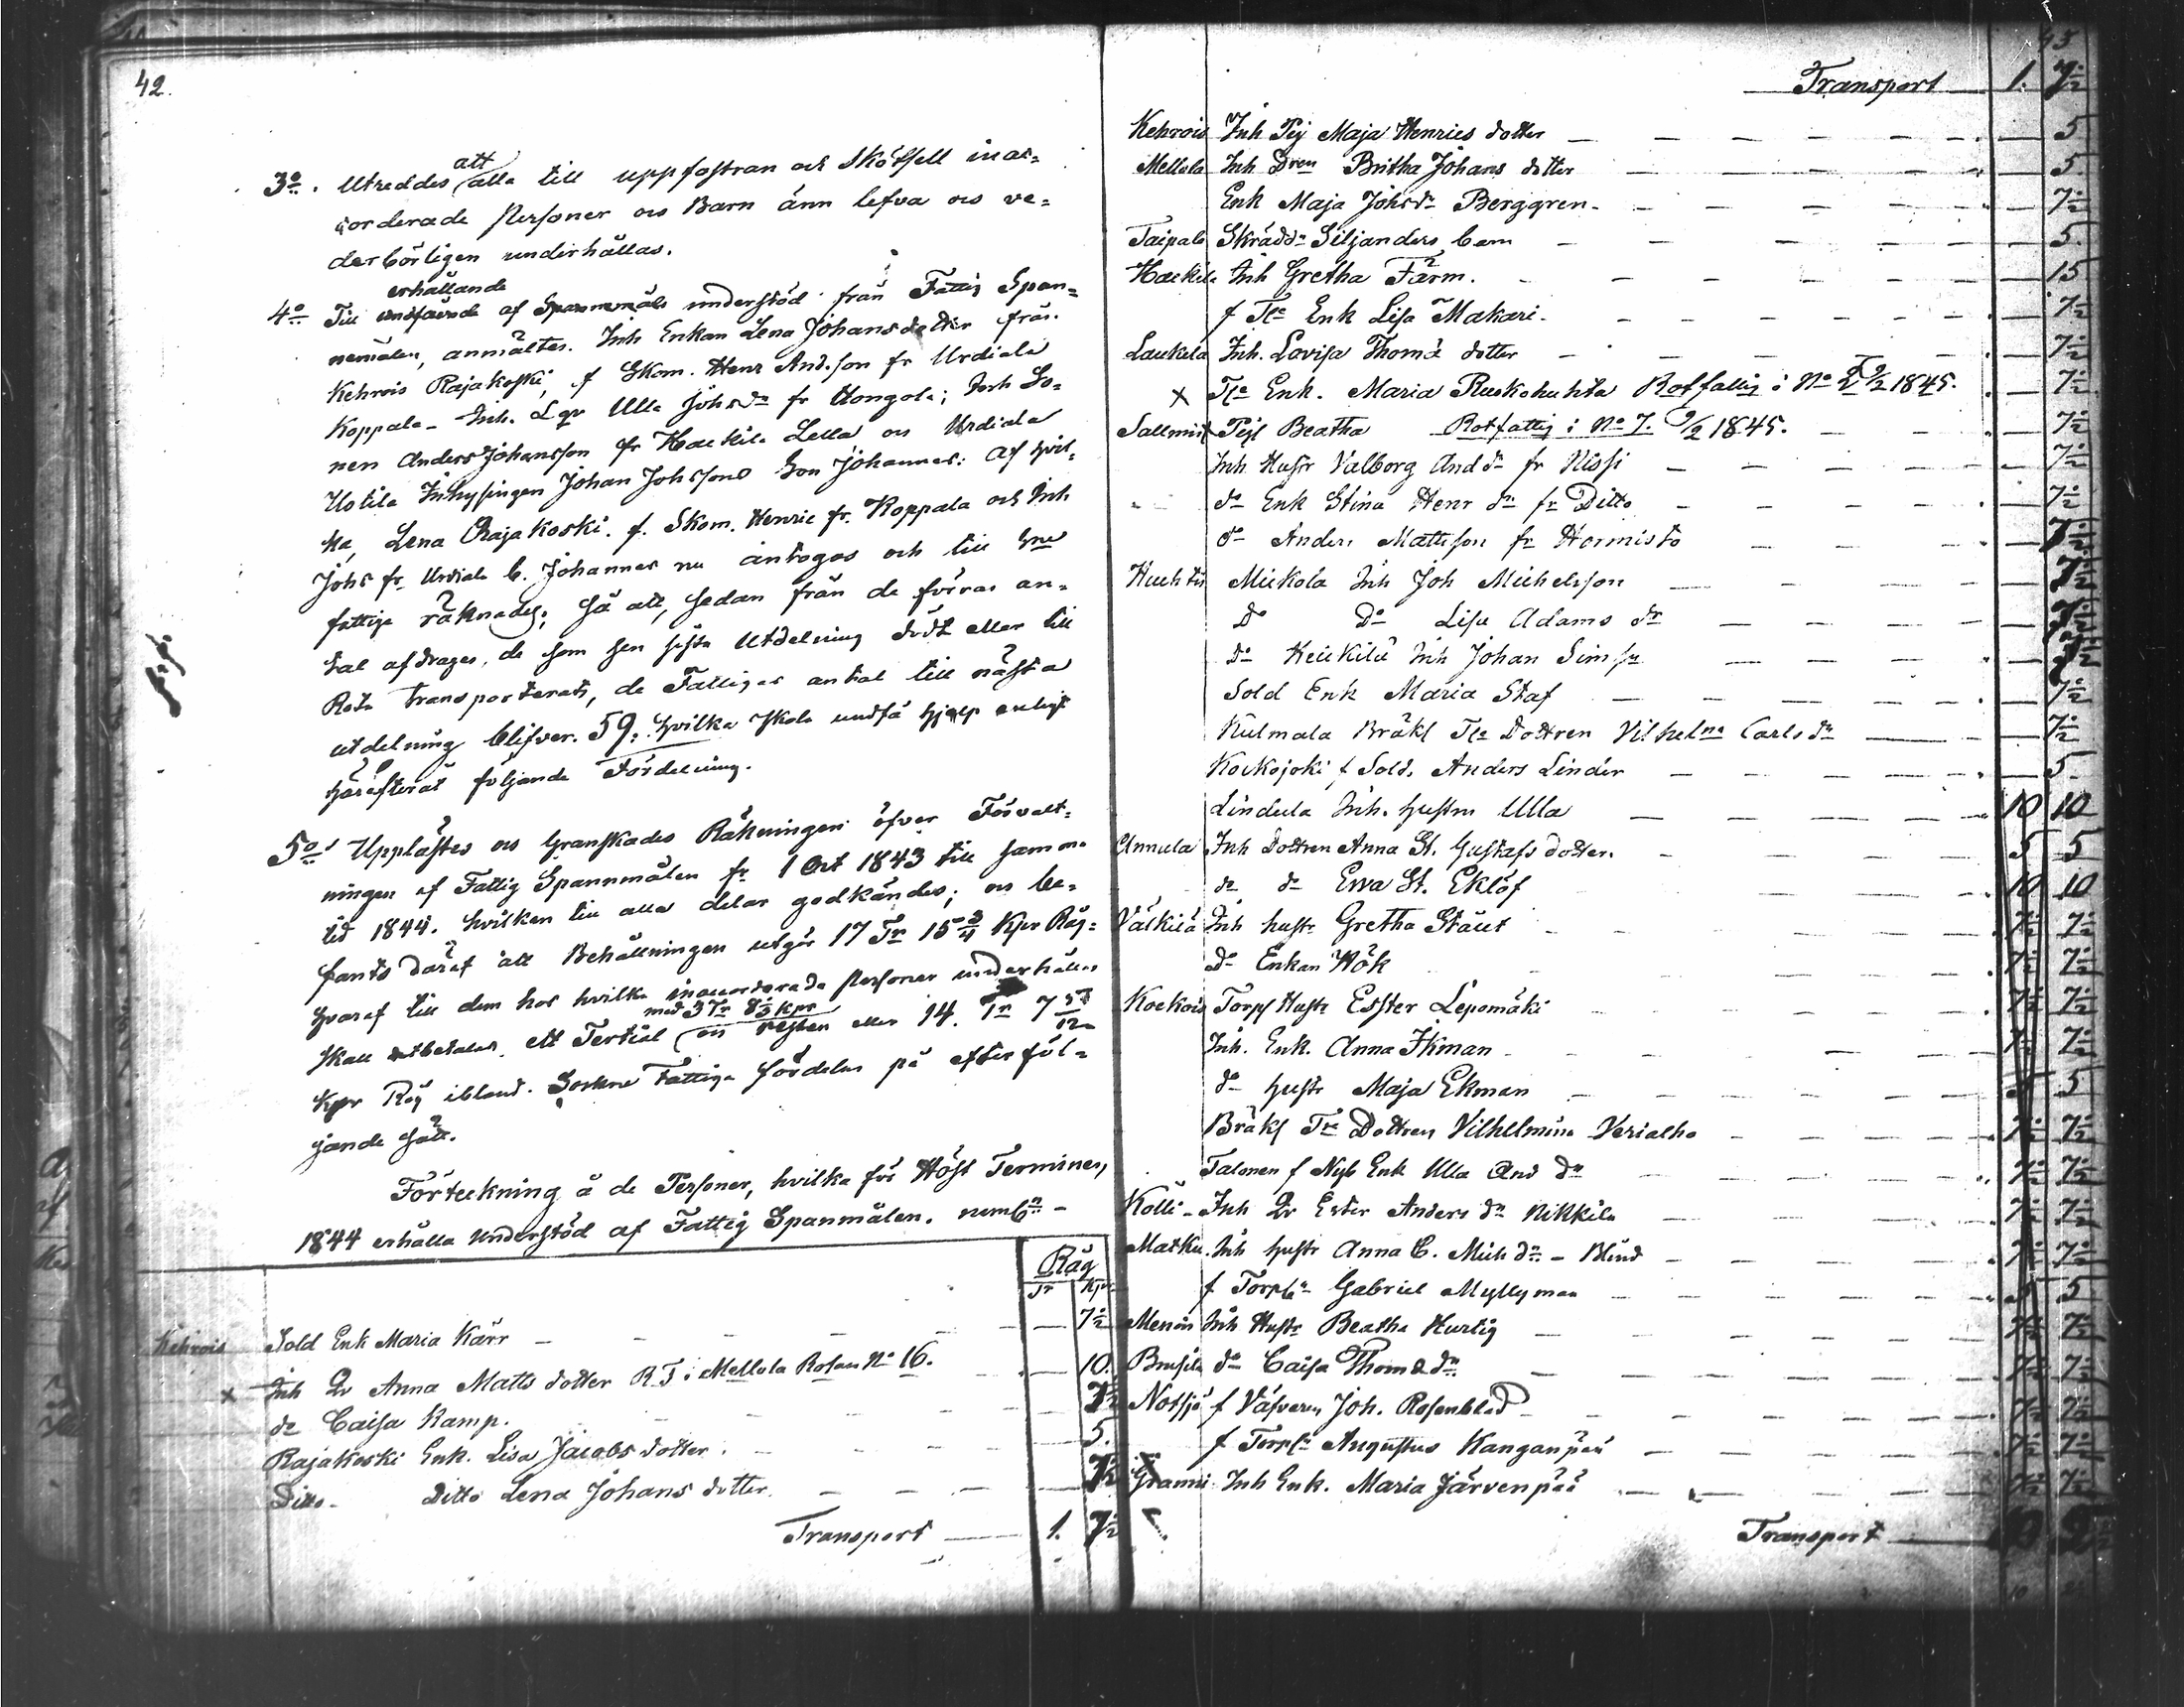 42.
3o. Utreddes att alla till uppfostran och Skötsell inac=
corderade Personer och Barn änn lefva och ve=
derbörligen underhållas.
erhållande
4o Till af Spannemåls understöd från Fattig Span=
nemålen, anmältes. Inh Enkan Lena Johansdotter från
Kehrois Rajakoski, f Skom. Henr And.son fr Urdiala
Koppala - Inh. Lqr Ulla Johsdr fr Hongola; Inh So=
nen Anders Johansson fr Hackila Lella och Urdiala
Ustila Inhysingen Johan Johssons Son Johannes: Af hvil=
ka, Lena Rajakoski. f. Skom. Henric fr. Koppala och Inh
Johs fr. Urdiala b. Johannes nu antogos och till
fattige räknades; Så att, sedan från de förras an=
tal afdrages, de som sen sista Utdelning dödt eller till
Rota transporterats, de Fattiges antal till nästa
utdelning blifver. 59. hvilka skola undfå hjelp enligt
härefterat följande Fördelning.
5o Upplästes och Granskades Räkningen öfver Förvalt=
ningen af Fattig Spannmålen fr 1 Oct 1843 till samma
tid 1844. hvilken till alla delar godkändes; och be=
fants däraf att Behållningen utgör 17 Tr 15 3/4 Kpr Råg=
hvaraf till dem hos hvilka inaccorderade Personer underhålles
med 3 Tr 8 1/3 kpr
skall utbetalas ett Tertial och resten eller 14. Tr 7 5/12
Kpr Råg ibland Socknens Fattige fördelas på efterföl=
jande sätt.
Förteckning å de Personer, hvilka för Höst Terminen
1844 erhålla Understöd af Fattig Spanmålen. neml. -
Råg
Tr Kpr
Kehrois Sold Enk Maria Kärr - 7 1/2
x Inh Qv Anna Matts dotter R F i Mellola Rotan No 16. 10.
do Caisa Kamp. 7 1/2
Rajakoski Enk. Lisa Jacobs dotter. 5.
Ditto - Ditto Lena Johans dotter 7 1/2
Transport 1. 7 1/2
43
Transport 1. 7 1/2
Kehrois Inh Pij Maja Henrics dotter 5
Mellola Inh Dren Britha Johans dotter 5
Enk Maja Johsdr Berggren - 7 1/2
Taipale Skräddr Siljanders barn 5.
Hackila Inh Gretha Färm. 15
f Tlr Enk Lisa Makari - 7 1/2
Laukela Inh. Lovisa Thomæ dotter 7 1/2
x Tlr Enk. Maria Ruskohuhta Rotfattig i No 9/2 1845. 7 1/2
Sallmis Pigl Beatha Rotfattig i No 7. 9/2 1845. 7 1/2
Inh Hustr Valborg And dr fr Nissi 7 1/2
do Enk Stina Henr dr fr Ditto 7 1/2
do Anders Mattsson fr Hormisto 7 1/2
Huhtis Mickola Inh Joh Michelsson 7 1/2
do Do Lisa Adams dr 7 1/2
do Heickilä Inh Johan Sims 7 1/2
Sold Enk Maria Staf 7 1/2
Kulmala Bräkl Tlr Dottren Vilhelma Carls dr 7 1/2
Koekojoki f Sold. Anders Linder 5
Lindula Inh. hustru Ulla 10 10
Annula Inh Dottren Anna St. Gustafs dotter. 5 5
do do Ewa St. Eklöf 10 10
Välkilä Inh hustr Gretha Stäut 7 1/2 7 1/2
do Enkan Hök 7 1/2 7 1/2
Koekois Torp Hustr Esster Lepomäki 7 1/2 7 1/2
Inh. Enk. Anna Ikman 7 1/2 7 1/2
do hustr Maja Ekman 5 5
Bräkl Tr Dottren Vilhelmina Verialho 7 1/2 7 1/2
Talonen f Nyb Enk Ulla And dr 7 1/2 7 1/2
Kölli - Inh Qv Ester Anders dr Nikkila 7 1/2 7 1/2
Matku. Inh hustr Anna C. Mich dr. - Blind 7 1/2 7 1/2
f Torp Gabriel Myllyman 5 5
Menois Inh Hustr Beatha Hurtig 7 1/2 7 1/2
do Caisa Thomæ dr 7 1/2 7 1/2
Notsjö f Väfvaren Joh. Rosenblad 7 1/2 7 1/2
f Torp Augustus Kanganpää 7 1/2 7 1/2
Inh Enk. Maria Järvenpää 7 1/2 7 1/2
Transport 10